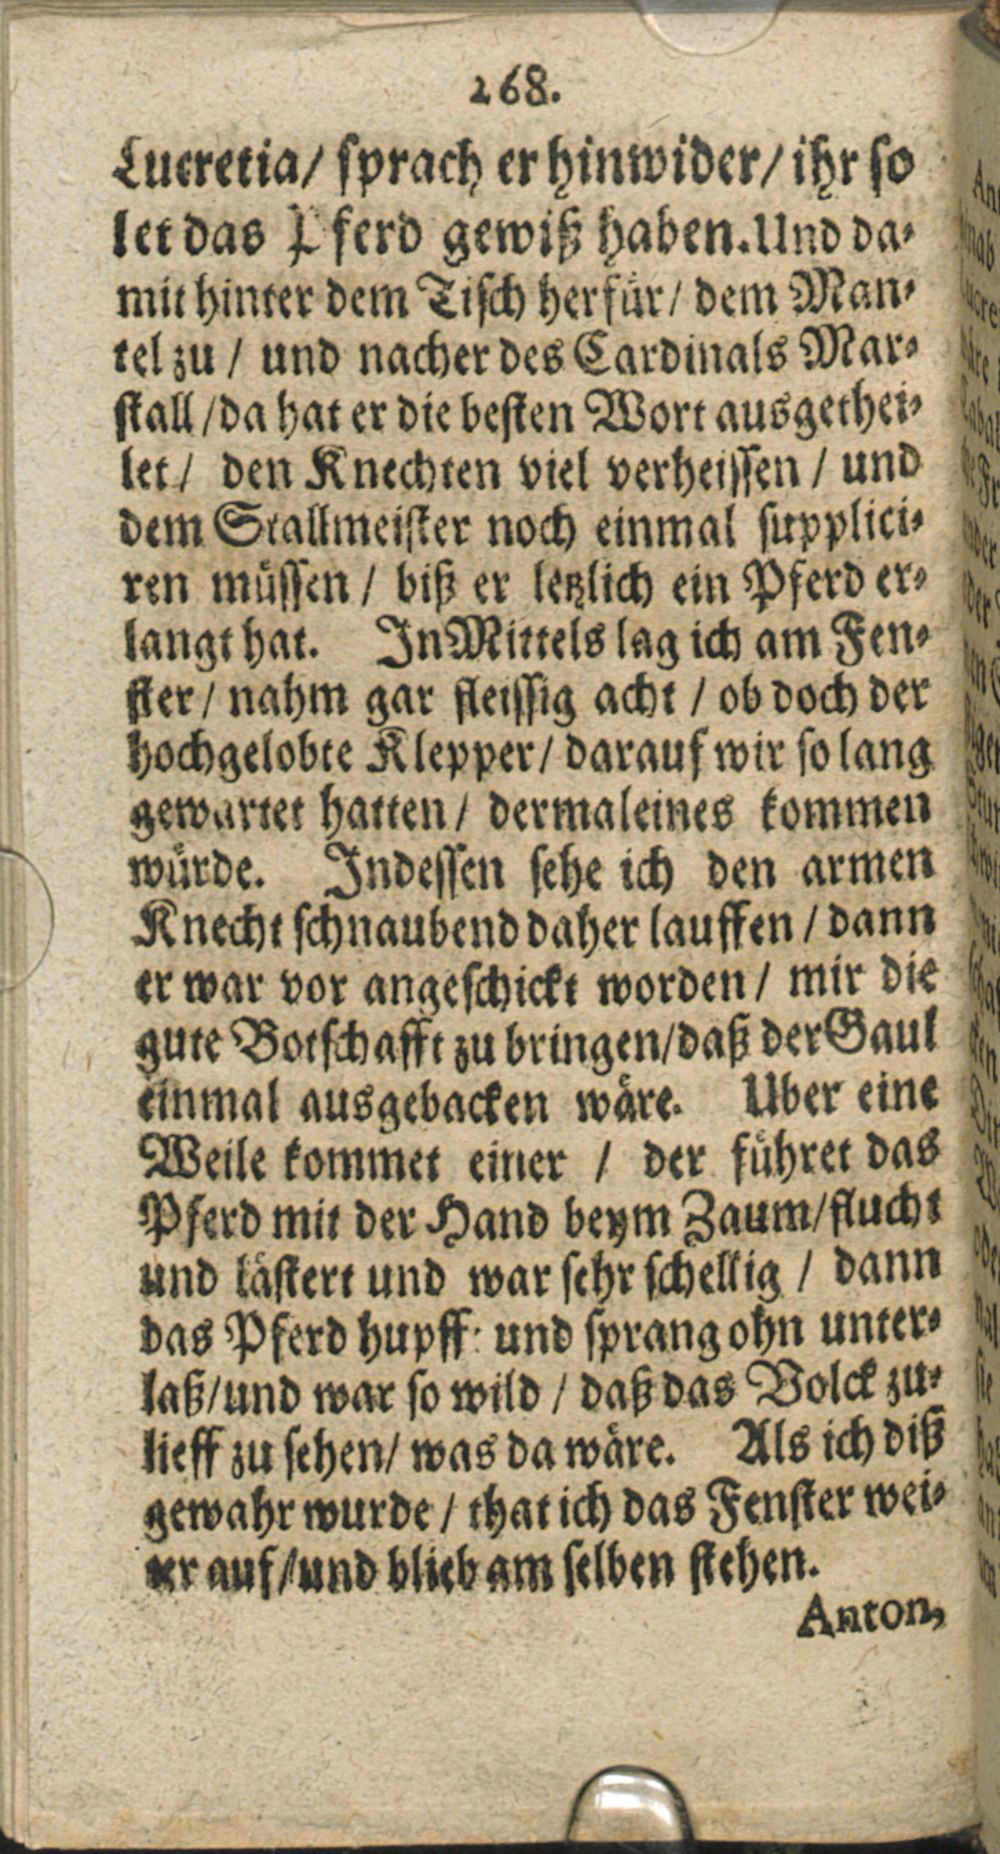 268.
Lucretia/ sprach er hinwider/ ihr so
let das Pferd gewiß haben. Und da-
mit hinter dem Tisch herfür/ dem Man-
tel zu / und nacher des Cardinals Mar-
stall /da hat er die besten Wort ausgethei-
let/ den Knechten viel verheissen / und
dem Stallmeister noch einmal supplici-
ren müssen / biß er letzlich ein Pferd er-
langt hat. In Mittels lag ich am Fen-
ster / nahm gar fleissig acht / ob doch der
hochgelobte Klepper/ darauf wir so lang
gewartet hatten/ dermaleines kommen
würde. Indessen sehe ich den armen
Knecht schnaubend daher lauffen / dann
er war vor angeschickt worden / mir die
gute Botschafft zu bringen/daß der Gaul
einmal ausgebacken wäre. Uber eine
Weile kommet einer / der führet das
Pferd mit der Hand beym Zaum/flucht
und lästert und war sehr schellig / dann
das Pferd hupff: und sprang ohn unter-
laß/und war so wild / daß das Volck zu-
lieff zu sehen/ was da wäre. Als ich diß
gewahr wurde / that ich das Fenster wei-
ter auf/und blieb am selben stehen.
Anton,